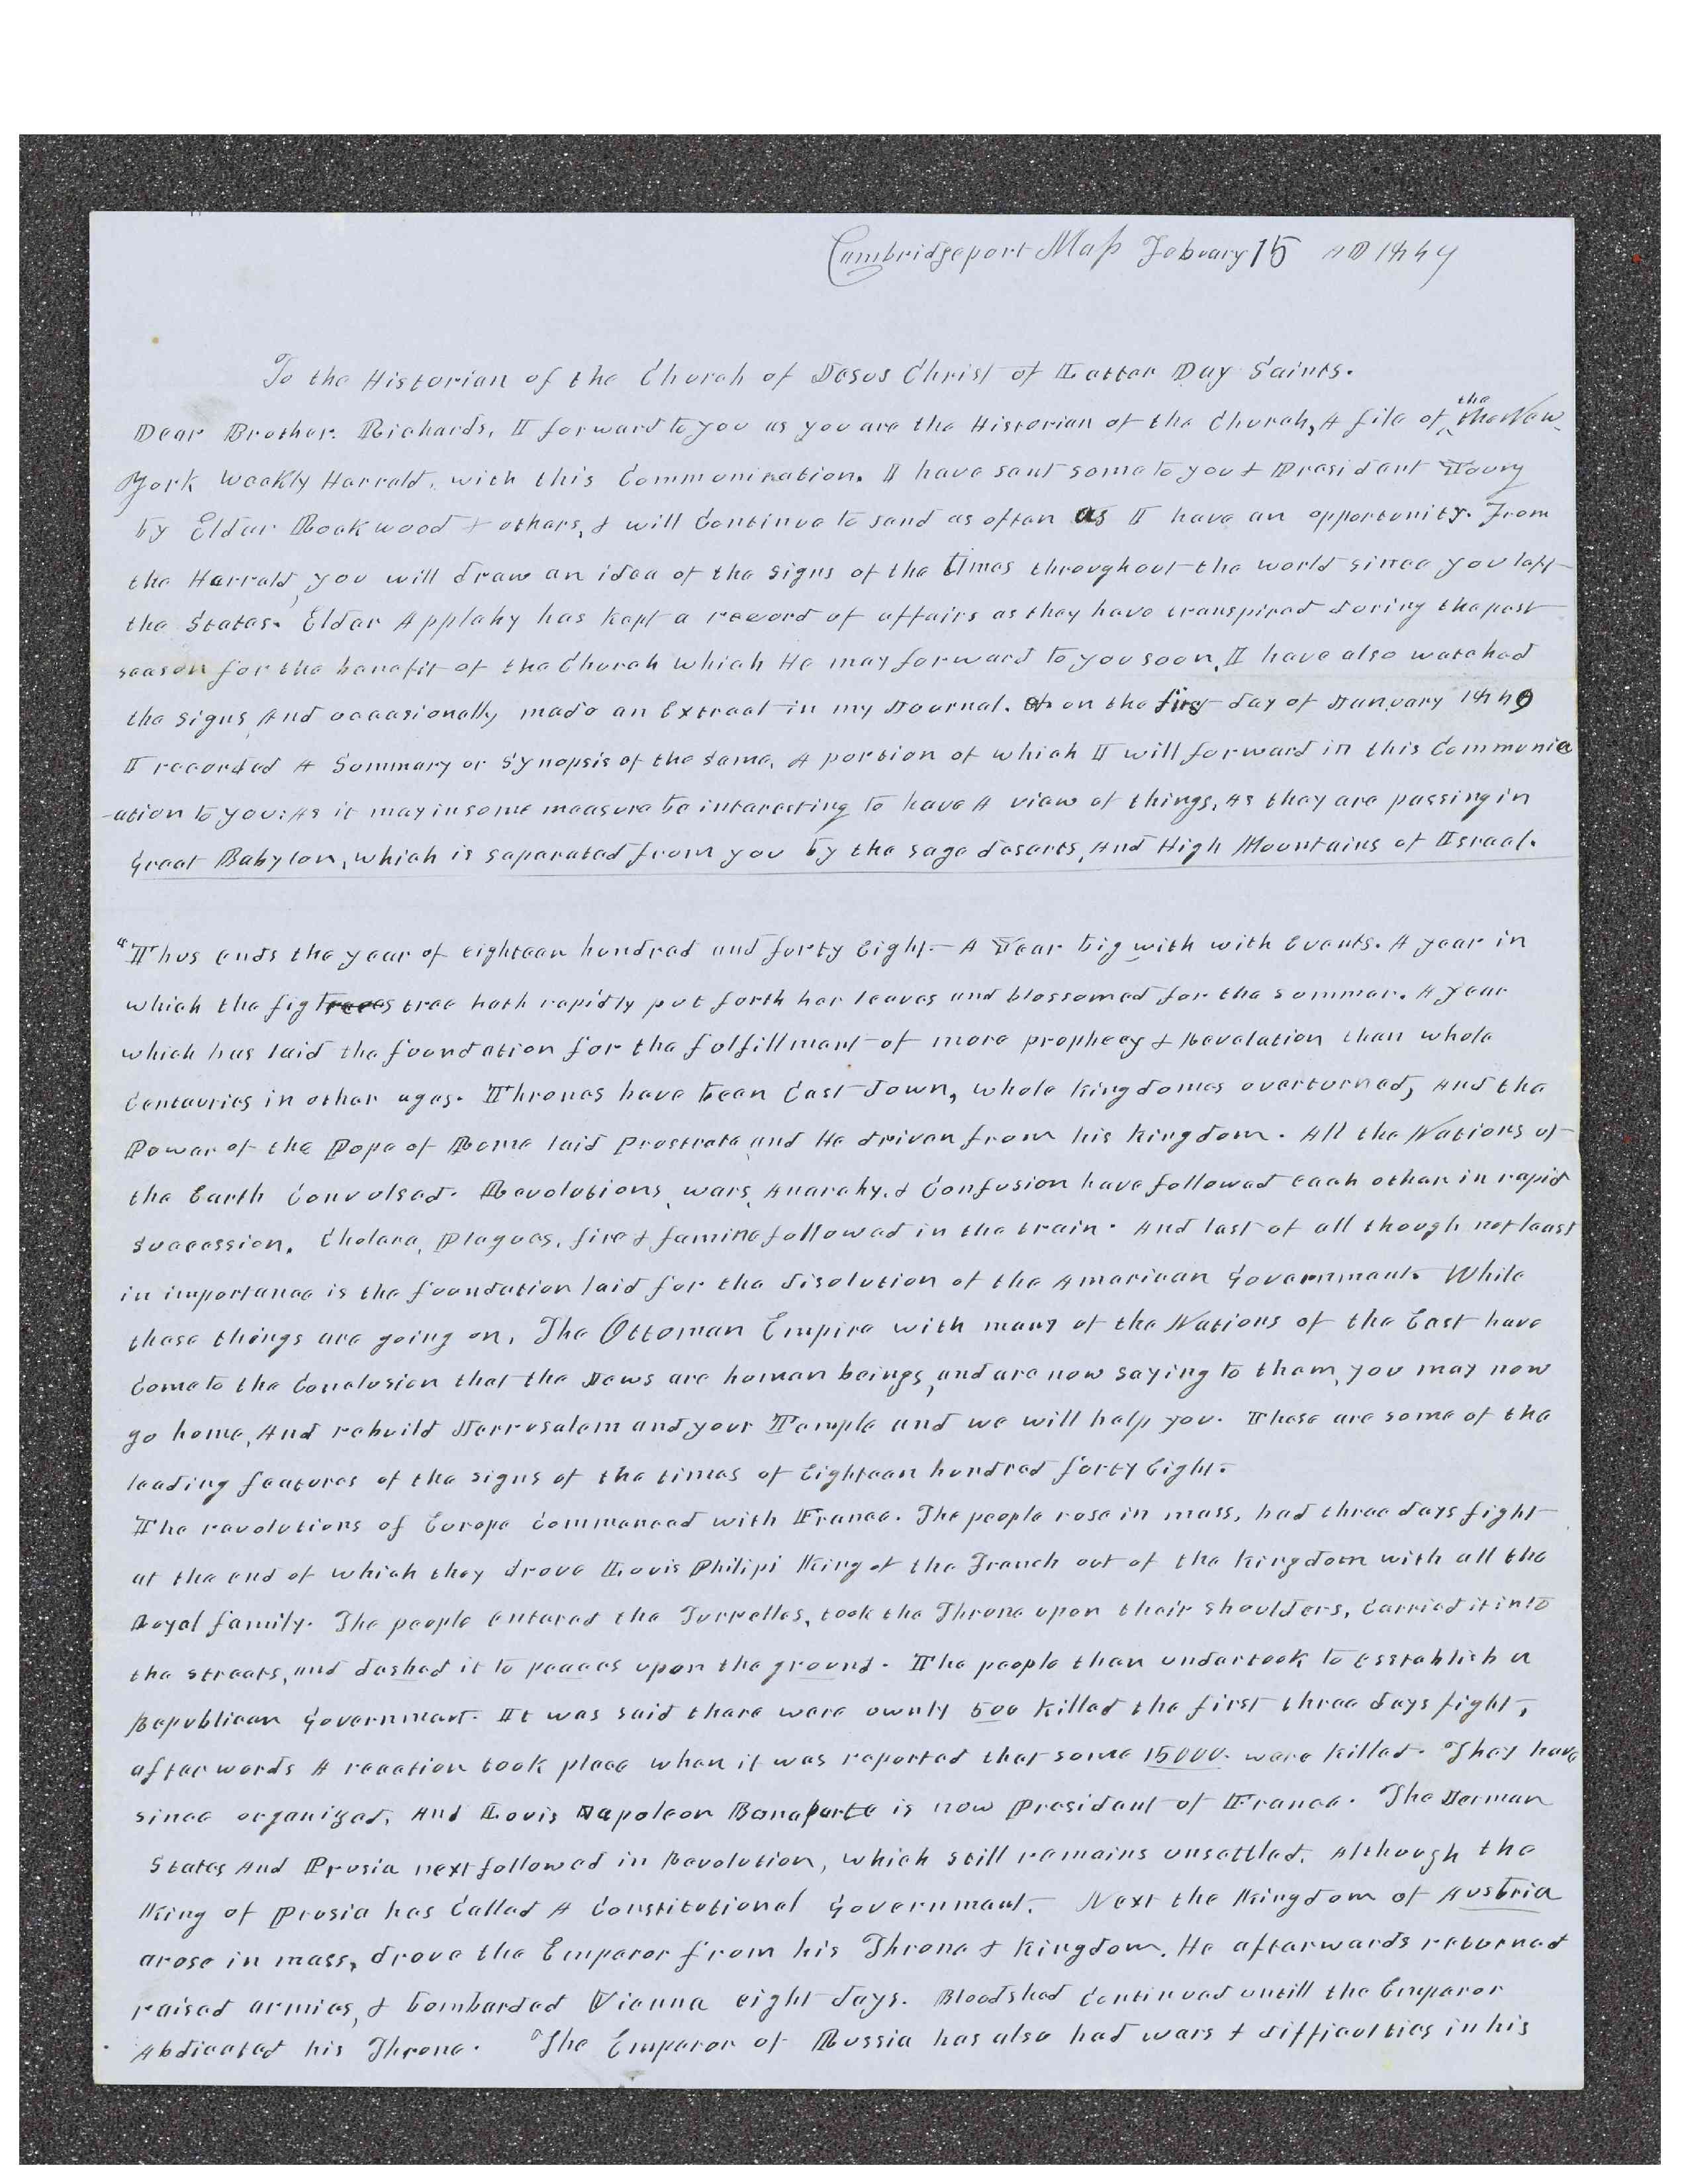 Cambridgeport Mass February 15 AD 1849
To the Historian of the Church of Jesus Christ of Latter Day Saints.
Dear Brother. Richards, I forward to you as you are the Historian of the Church, A file of ^the the New
York Weakly Harrald, with this Communication. I have sent some to you & President
by Elder Rockwood & others, & will Continue to send as often as I have an opportunity. From
the Harrald, you will draw an idea of the signs of the times throughout the world since you left
the States. Elder Appleby has kept a record of affairs as they have transpired during the past
season for the benefit of the Church which He may forward to you soon, I have also watched
the signs, And occasionally made an Extract in my Journal. on the first day of January 1849
I recorded A Summary or Synopsis of the same, A portion of which I will forward in this Communic
-ation to you: As it may in some measure be interesting to have A view of things, as they are passing in
Great Babylon, which is separated from you by the sage desarts, And High Mountains of Israel.
"Thus ends the year of eighteen hundred and forty Eight. A Year big with with Events. A year in
which the fig trees tree hath rapidly put forth her leaves and blossomed for the summer. A year
which has laid the foundation for the fulfillment of more prophecy & Revelation than whole
Centauries in other ages. Thrones have been Cast down, whole kingdomes overturned, And the
Power of the Pope of Rome laid Prostrate and He driven from his kingdom. All the Nations of
the Earth Convulsed. Revolutions, wars, Anarchy, & Confusion have followed each other in rapid
succession. Cholera, Plagues, fire & famine followed in the train. And last of all though not least
in importance is the foundation laid for the disolution of the American Government. While
these things are going on, The Ottoman Empire with many of the Nations of the East have
Come to the Conclusion that the Jews are human beings, and are now saying to them, you may now
go home, And rebuild Jerrusalem and your Temple and we will help you. These are some of the
leading features of the signs of the times of Eighteen hundred forty Eight.
The revolutions of Europe Commenced with France. The people rose in mass, had three days fight
at the end of which they drove Louis Philipi King of the French out of the kingdom with all the
Royal family. The people entered the Turrelles, took the Throne upon their shoulders, Carried it into
the streets, and dashed it to peaces upon the ground. The people then undertook to esstablish a
Republican Government. It was said there were ownly 500 killed the first three days fight,
afterwords A reaction took place when it was reported that some 15000. were killed. They have
since organized, And Louis Napoleon Bonaparte is now President of France. The Jerman
States And Prusia next followed in Revolution, which still remains unsettled. Although the
King of Prusia has Called A Constitutional Government. Next the Kingdom of Austria
arose in mass, drove the Emperor from his Throne & Kingdom. He afterwards returned
raised armies, & bombarded Vienna eight days. Bloodshed Continued untill the Emperor
Abdicated his Throne. The Emperor of Russia has also had wars & difficulties in his